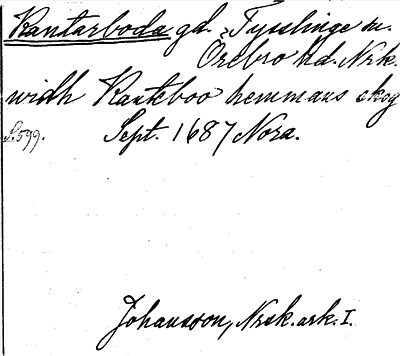 Kantarboda gd. Tysslinge sn.
Örebro hd. Nrk.
widh Kankboo hemmans skog
S. 599. Sept. 1687 Nora.
Johansson, Nrsk. ark. I.